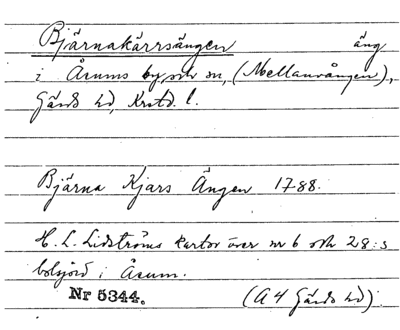 Bjärnakärrsängen äng
i Årums by och sn, (Mellanvången),
Gärds hd, Krstd. l.
Bjärna Kjärs Ängen 1788.
H. L. Lidströms kartor över nr 6 och 28:s
bolsjord i Årum.
Nr 5344. (A 4 Gärds hd)